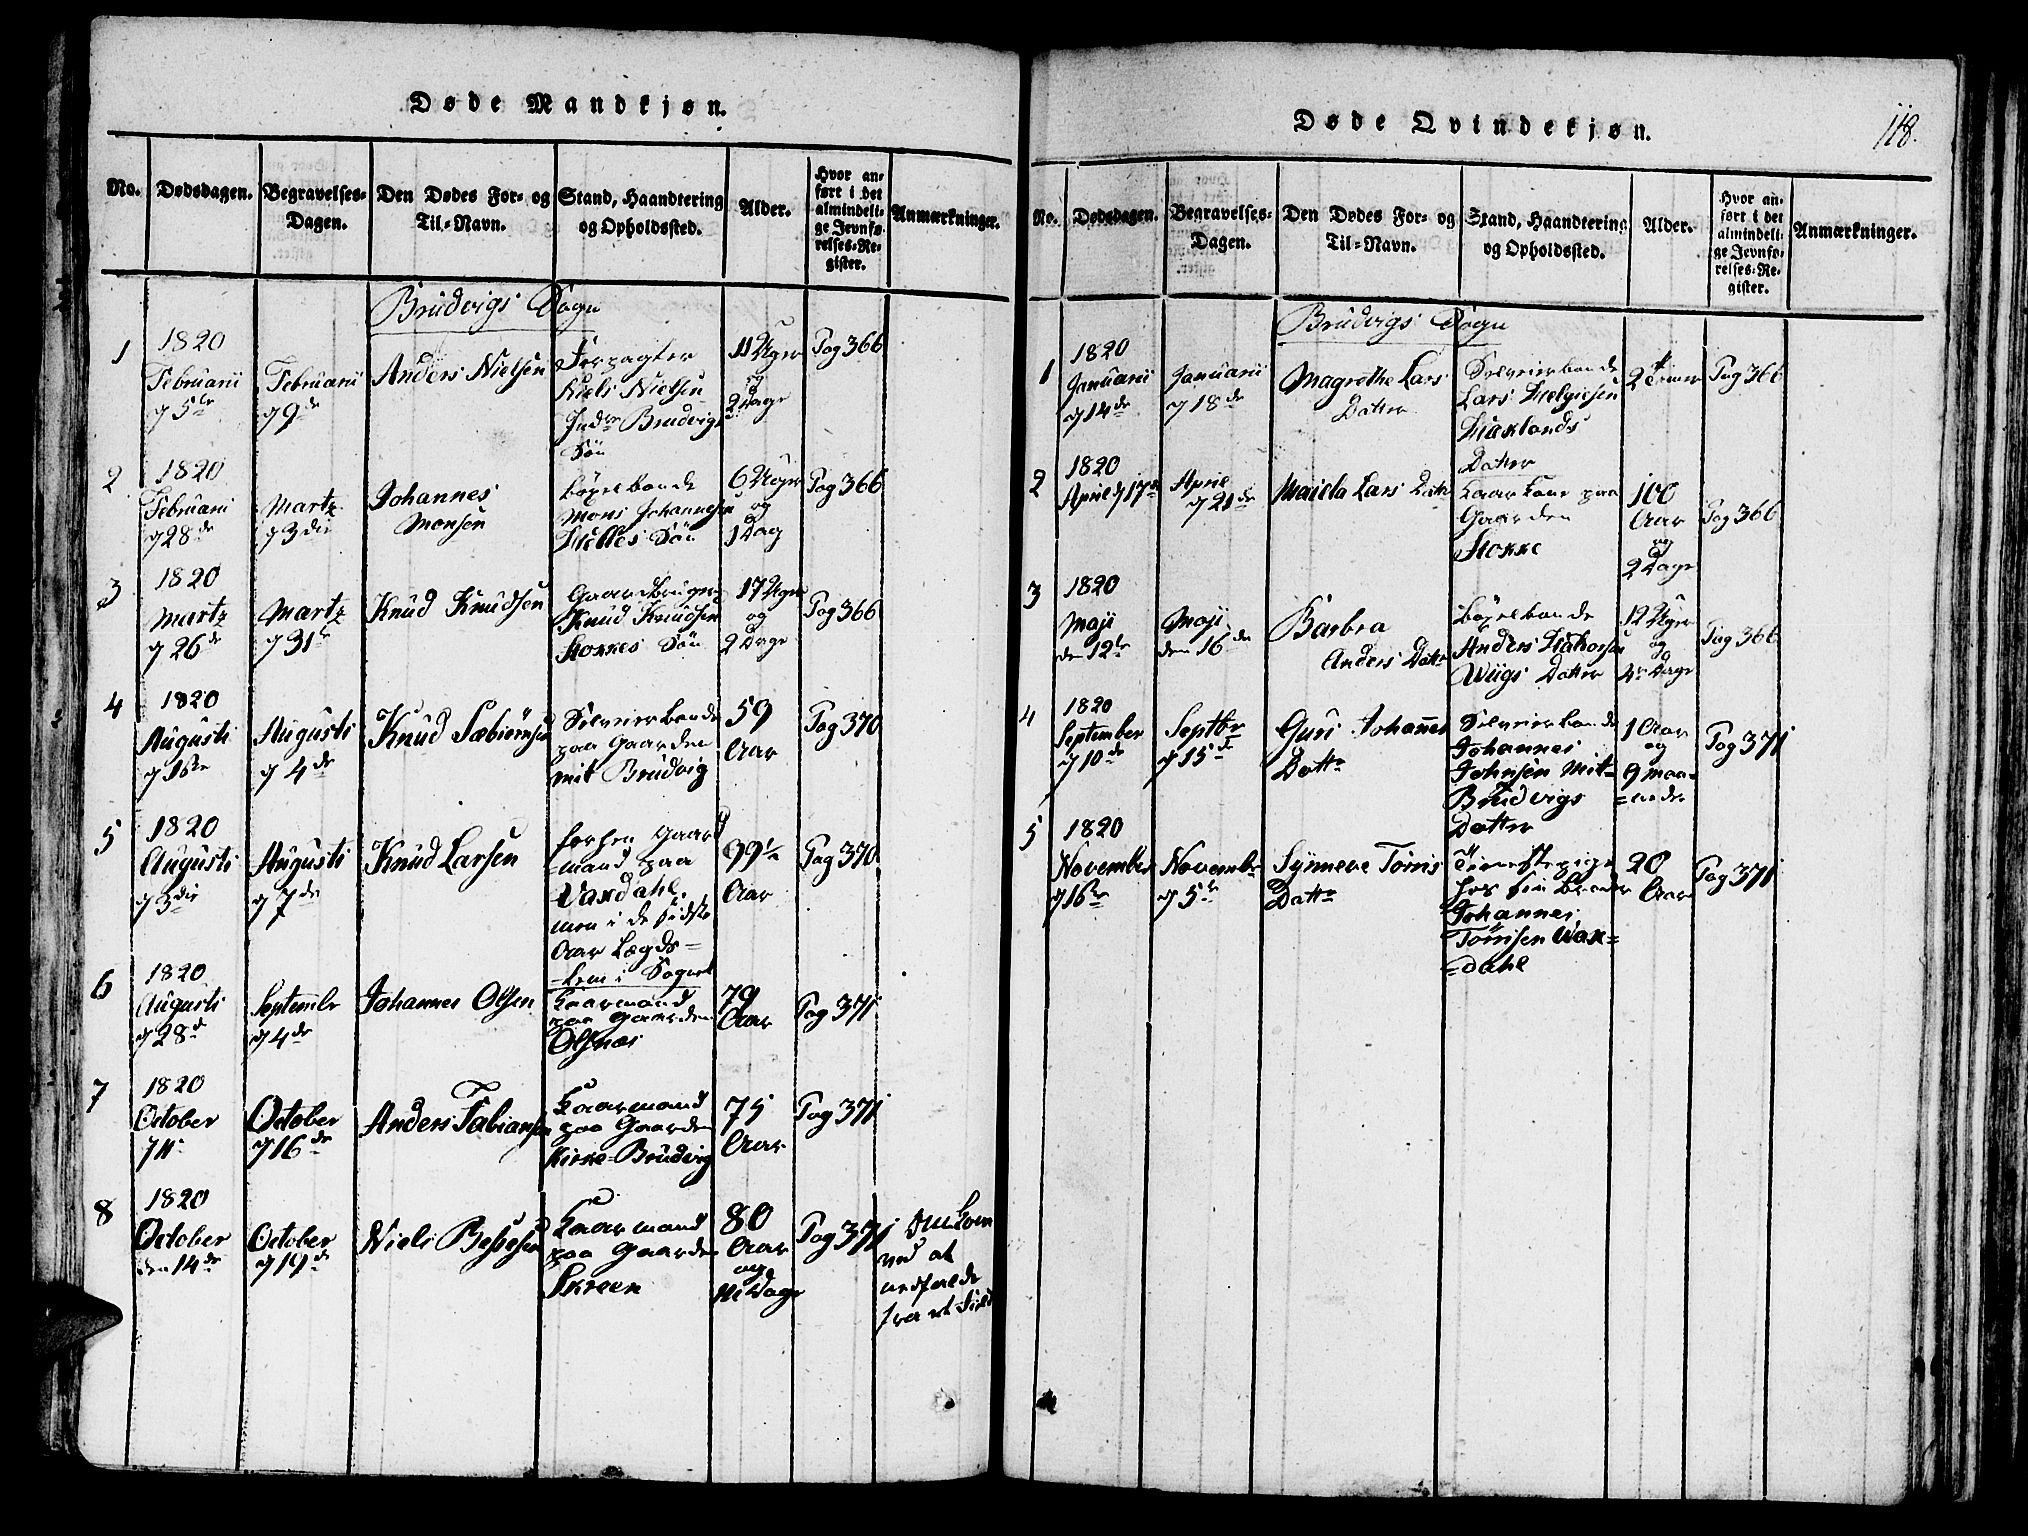 Døde Mandkjøn.
No. Dødsdagen. Begravelses-Dagen. Den Dødes For- og Til-Navn. Stand, Haandtering og Opholdssted. Alder. Hvor anført i det almindelige Jevnførelses-Register. Anmærkninger.
Brudvigs Sogn
1
1820
Februarii
d 5te
Februarii
d 9de
Anders Nielsen
Forpagter
Niels Nielsen
Indre Brudvigs
Søn
11 Uger
og
2 Dage
Pag 366
2
1820
Februarii
d 28de
Martz
d 3die
Johannes
Monsen
Bøxelbonde
Mons Johannesen
Søn
6 Uger
og
1 Dag
Pag 366
3
1820
Martz
d 26de
Martz
d 31te
Knud Knudsen
Gaardbruger
Knud Knudsen
Stokkes Søn
17 Uger
og
2 Dage
Pag 366
4
1820
Augusti
d 1ste
Augusti
d 4de
Knud Sæbiørnsen
Selveierbonde
paa Gaarden
mit Brudvig
59
Aar
Pag 370
5
1820
Augusti
d 3die
Augusti
d 7de
Knud Larsen
forhen Gaard
=mand paa
Vaxdahl,
men i de sidste
Aar Lægds=
=lem i Sognet
99½
Aar
Pag 370
6
1820
Augusti
d 28de
Septembr
d 4de
Johannes Olsen
Kaarmand
paa Gaarden
Olsnæs
79
Aar
Pag 371
7
1820
October
d 11
October
d 16de
Anders Fabiansen
Kaarmand
paa Gaarden
Kirke-Brudvig
75
Aar
Pag 371
8
1820
October
den 14de
October
d 19de
Niels
Kaarmand
paa Gaarden
Skreen
80
Aar
og
Dage
Pag 371
Omkom
ved at
nedfalde
fra et
Døde Qvindekjøn.
118.
No. Dødsdagen. Begravelses-Dagen. Den Dødes For- og Til-Navn. Stand, Haandtering og Opholdssted. Alder. Hvor anført i det almindelige Jevnførelses-Register. Anmærkninger.
Brudvigs Sogn
1
1820
Januarii
d 14de
Januarii
d 18de
Magrethe Lars
Datter
Selveierbonde
Lars Helgesen
Datter
2 Timer
Pag 366
2
1820
April d 17de
April
d 21de
Lars Datter
Kaarkone paa
Gaarden
Stokke
100
Aar
og
2 Dage
Pag 366
3
1820
Maji
den 12te
Maji
den 16de
Barbra
Anders Datter
Bøxelbonde
Anders
Wiigs Datter
12 Uger
og
Dage
Pag 366
4
1820
September
d 10de
Septbr
d 15de
Guri Johannes
Datter
Selveierbonde
Johannes
Johnsen Mit=
Brudvigs
Datter
1 Aar
og
9 Maa=
=neder
Pag 371
5
1820
November
d 1ste
Novembr
d 5te
Synneve Tørris
Datter
Tienestepige
hos sin Broder
Johannes
Tørrisen Wax=
=dahl
20
Aar
Pag 371